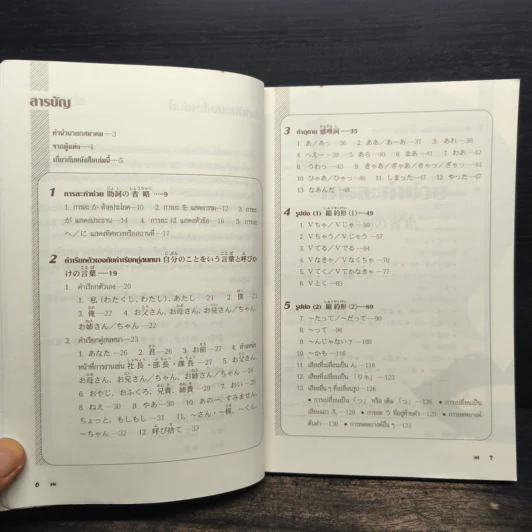 สารบัญ
คำนำนายกสมาคม—3
จากผู้แต่ง—4
เกี่ยวกับหนังสือเล่มนี้—5
1 การละคำช่วย 助詞の省略—9
1. การละ か ท้ายประโยค—10 2. การละ を แสดงกรรม—12 3. การละ
が แสดงประธาน—14 4. การละ は แสดงหัวข้อ—16 5. การละ
へ/に แสดงทิศทางหรือสถานที่—17
2 คำเรียกตัวเองกับคำเรียกคู่สนทนา 自分のことをいう言葉と呼びか
けの言葉—19
1. คำเรียกตัวเอง—20
1. 私 (わたくし, わたし), あたし—21 2. 僕—21
3. 俺—22 4. お父さん, お母さん, お兄さん/ちゃん,
お姉さん/ちゃん—22
2. คำเรียกคู่สนทนา—23
1. あなた—26 2. 君—26 3. お前—27 4. ตำแหน่ง
หน้าที่การงานเช่น 社長・部長・課長—27 5. お父さん,
お母さん, お兄さん/ちゃん, お姉さん/ちゃん—28
6. おやじ, おふくろ, 兄貴, 姉貴—29 7. おい—29
8. ねえ—30 9. やあ—30 10. あのー, すみません,
ちょっと, もしもし—31 11. ～さん, ～様, ～くん,
～ちゃん—32 12. 呼び捨て—33
6
3 คำอุทาน 感嘆詞—35
1. あ/あっ—36 2. ああ/あーあ—37 3. あれ—38
4. へえー—39 5. あら—40 6. まあ—41 7. わあ—42
8. うわっ—43 9. きゃあ/ぎゃあ/きゃっ/ぎゃっ—44
10. ひゃあ/ひゃっ—46 11. しまった—47 12. やった—47
13. なあんだ—48
4 รูปย่อ (1) 縮約形 (1)—49
1. Vちゃ/Vじゃ—50
2. Vちゃう/Vじゃう—57
3. Vてる/Vでる—64
4. Vなきゃ/Vなくちゃ—70
5. Vてく/Vてかなきゃ—77
6. Vとく—83
5 รูปย่อ (2) 縮約形 (2)—89
7. ～たって/～だって—90
8. ～って—96
9. ～んじゃない?—108
10. ～かも—116
11. เสียงที่เปลี่ยนเป็น ん—118
12. เสียงที่เปลี่ยนเป็น 「りゃ」—123
13. เสียงอื่น ๆ ที่เปลี่ยนรูป—126
• การเปลี่ยนเป็น 「っ」 หรือ เติม 「っ」—126 • การเปลี่ยนเป็น
7